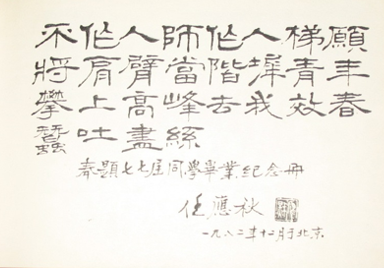 不作人師作人梯願
將肩臂當階墀青年
攀上高峰去我效春
蠶吐盡絲
奉題七七屆同學畢業紀念冊
任應秋
一九八二年十二月于北京